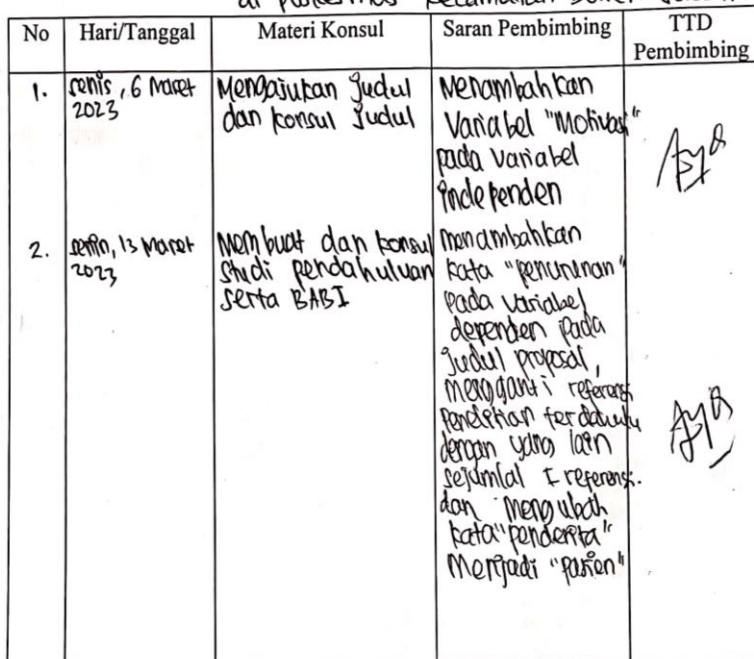 di Puskesmas Kecamatan
No Hari/Tanggal Materi Konsul Saran Pembimbing TTD Pembimbing
1. senin, 6 Maret 2023
Mengajukan Judul
dan konsul Judul
Menambahkan
Variabel "Motivasi"
pada variabel
independen
2. senin, 13 Maret 2023
Membuat dan konsul
studi pendahuluan
serta BAB I
menambahkan
kata "penurunan"
pada variabel
dependen pada
judul proposal,
mengganti referensi
penelitian terdahulu
dengan yang lain
sejumlal 1 referensi.
dan mengubah
kata "penderita"
Menjadi "pasien"